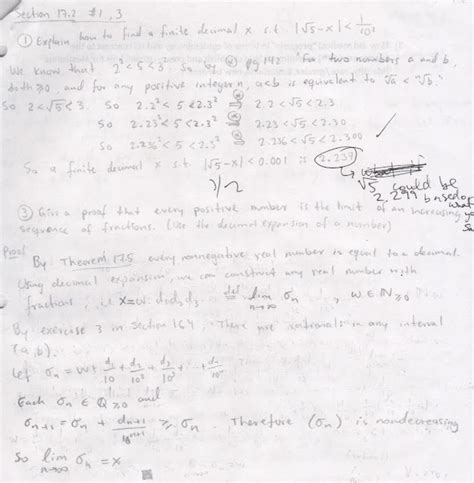 Section 17.2 #1, 3
① Explain how to find a finite decimal x s.t. |√5 - x| < 1/10³
We know that 2² < 5 < 3². So by ⊛ pg 142 "For two numbers a and b,
both ≥0, and for any positive integer n, a<b is equivalent to ⁿ√a < ⁿ√b."
So 2 < √5 < 3. So 2.2² < 5 < 2.3² ⇒ 2.2 < √5 < 2.3
So 2.23² < 5 < 2.3² ⇒ 2.23 < √5 < 2.30
So 2.236² < 5 < 2.3² ⇒ 2.236 < √5 < 2.300
So a finite decimal x s.t. |√5 - x| < 0.001 is 2.237
√5 could be
2.299 based on
what
1/2
③ Give a proof that every positive number is the limit of an increasing
sequence of fractions. (Use the decimal expansion of a number)
Proof By Theorem 17.5 every nonnegative real number is equal to a decimal.
Using decimal expansion, we can construct any real number with
fractions, i.e. x = w. d₁d₂d₃ def= lim n→∞ σₙ , w ∈ ℕ≥0
By exercise 3 in Section 16.4, There are in any interval
(a, b).
Let σₙ = w + d₁/10 + d₂/10² + d₃/10³ + ... + dₙ/10ⁿ
Each σₙ ∈ ℚ ≥0 and
σₙ₊₁ = σₙ + dₙ₊₁/10ⁿ⁺¹ ≥ σₙ. Therefore (σₙ) is nondecreasing
So lim n→∞ σₙ = x